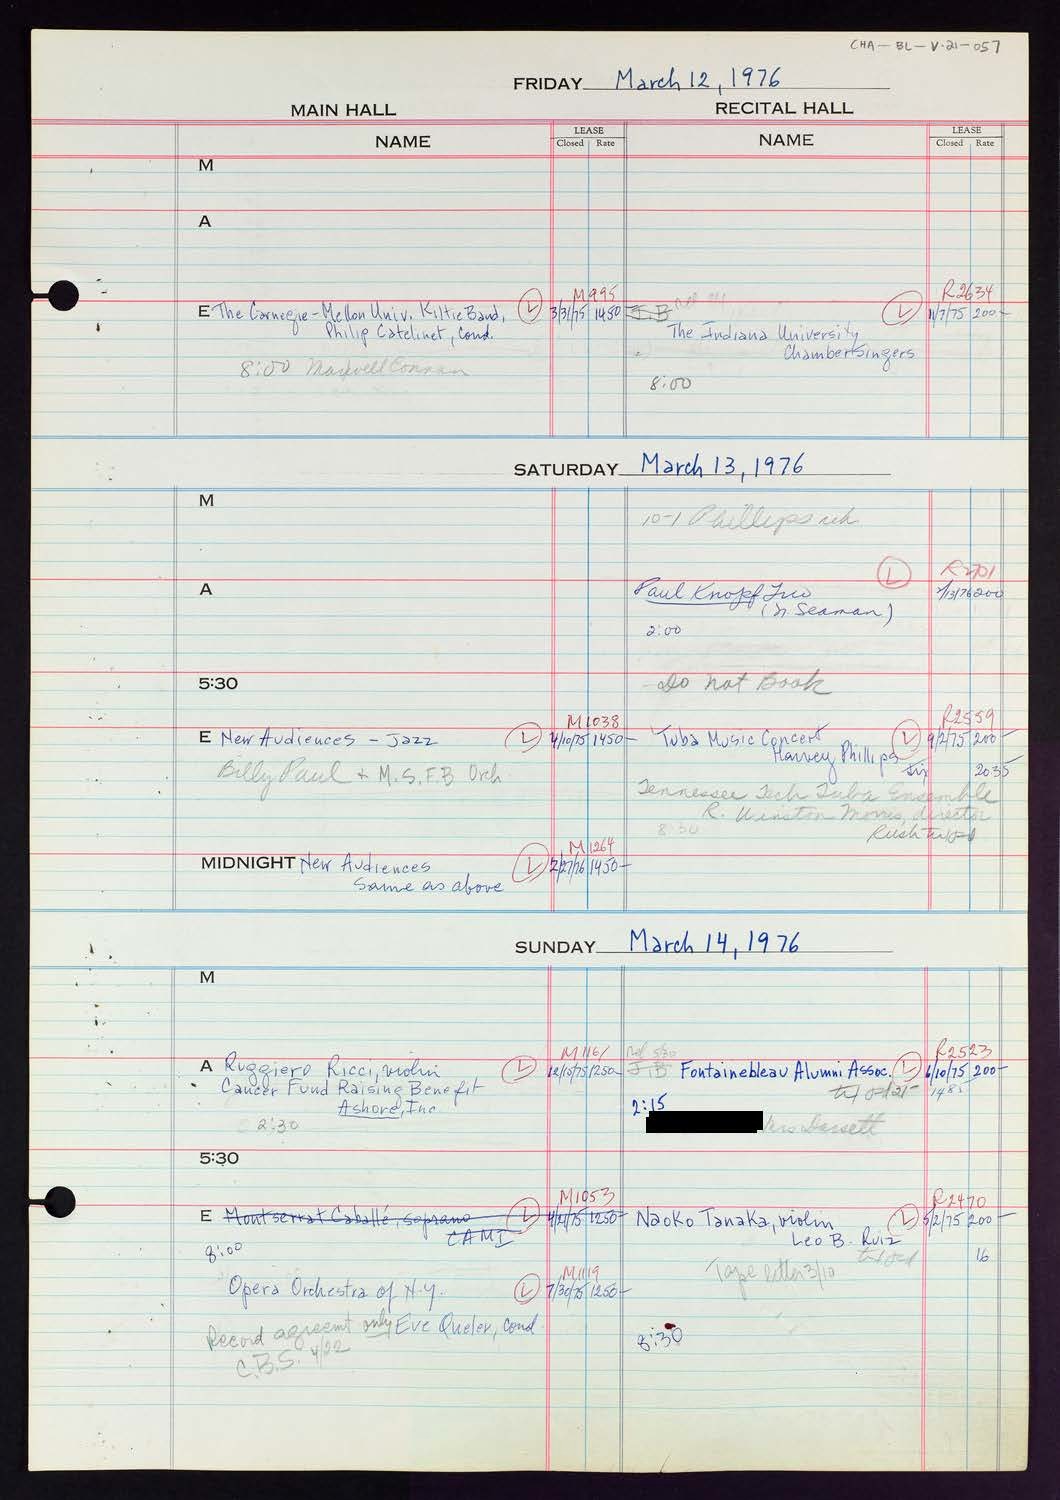 CHA-BL-V-21-057
FRIDAY March 12, 1976
MAIN HALL
RECITAL HALL
NAME
LEASE
Closed Rate
NAME
LEASE
Closed Rate
M
A
M995
R2634
E The Carnegie-Mellon Univ. Kiltie Band, L 3/31/75 1450
Philip Catelinet, Cond.
8:00 Maxwell Connan
J.B
The Indiana University L 11/7/75 200-
Chamber Singers
8:00
SATURDAY March 13, 1976
M
10-1 Phillips reh
A
L R2701
Paul Knopf Trio 200
(N Seaman)
2:00
5:30
Do Not Book
M1038
E New Audiences - Jazz L 4/10/75 1450-
Billy Paul + M.S.F.B Orch
R2559
Tuba Music Concert L 9/2/75 200-
Harvey Phillips
2035
Tennessee Tech Tuba Ensemble
R. Winston Morris, director
8:30
M1264
MIDNIGHT New Audiences L 2/27/76 1450-
Same as above
SUNDAY March 14, 1976
M
M1161
A Ruggiero Ricci, violin L 12/15/75 1250-
Cancer Fund Raising Benefit
Ashore, Inc
2:30
R2523
J.B Fontainebleau Alumni Assoc. L 6/10/75 200-
2:15
Mrs Dossett
5:30
M1053
E Montserrat Caballé, soprano L 4/21/75 1250-
CAMI
8:00
M1119
Opera Orchestra of N.Y. L 7/30/75 1250-
Record agreemt only Eve Queler, Cond
C.B.S. 4/22
R2470
Naoko Tanaka, violin L 5/2/75 200-
Leo B. Ruiz
16
Tape letter 3/10
8:30